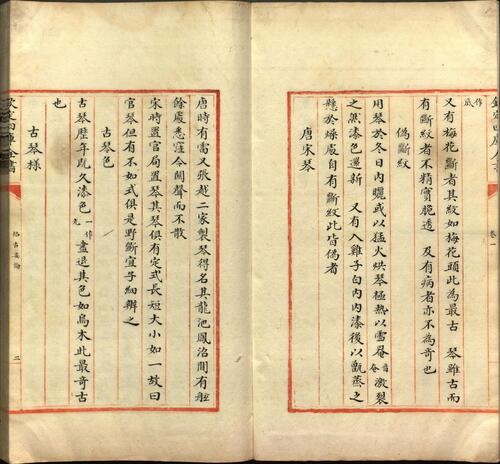 作底
又有梅花斷者其紋如梅花頭此為最古 琴雖古而
有斷紋者不精實脆透 及有病者亦不為奇也
偽斷紋
用琴於冬日内曬或以猛火烘琴極熱以雪罨音激裂
之然漆色還新 又有入雞子白内内漆後以甑蒸之
懸於燥處自有斷紋此皆偽者
唐宋琴
唐時有雷文張越二家製琴得名其龍池鳳沼間有舷
餘處悉窪令聞聲而不散
宋時置官局置琴其琴俱有定式長短大小如一故曰
官琴但有不如式俱是野斵宜子細辨之
古琴色
古琴歷年既久漆色一作光盡退其色如烏木此最奇古
也
古琴様
格古要論
二